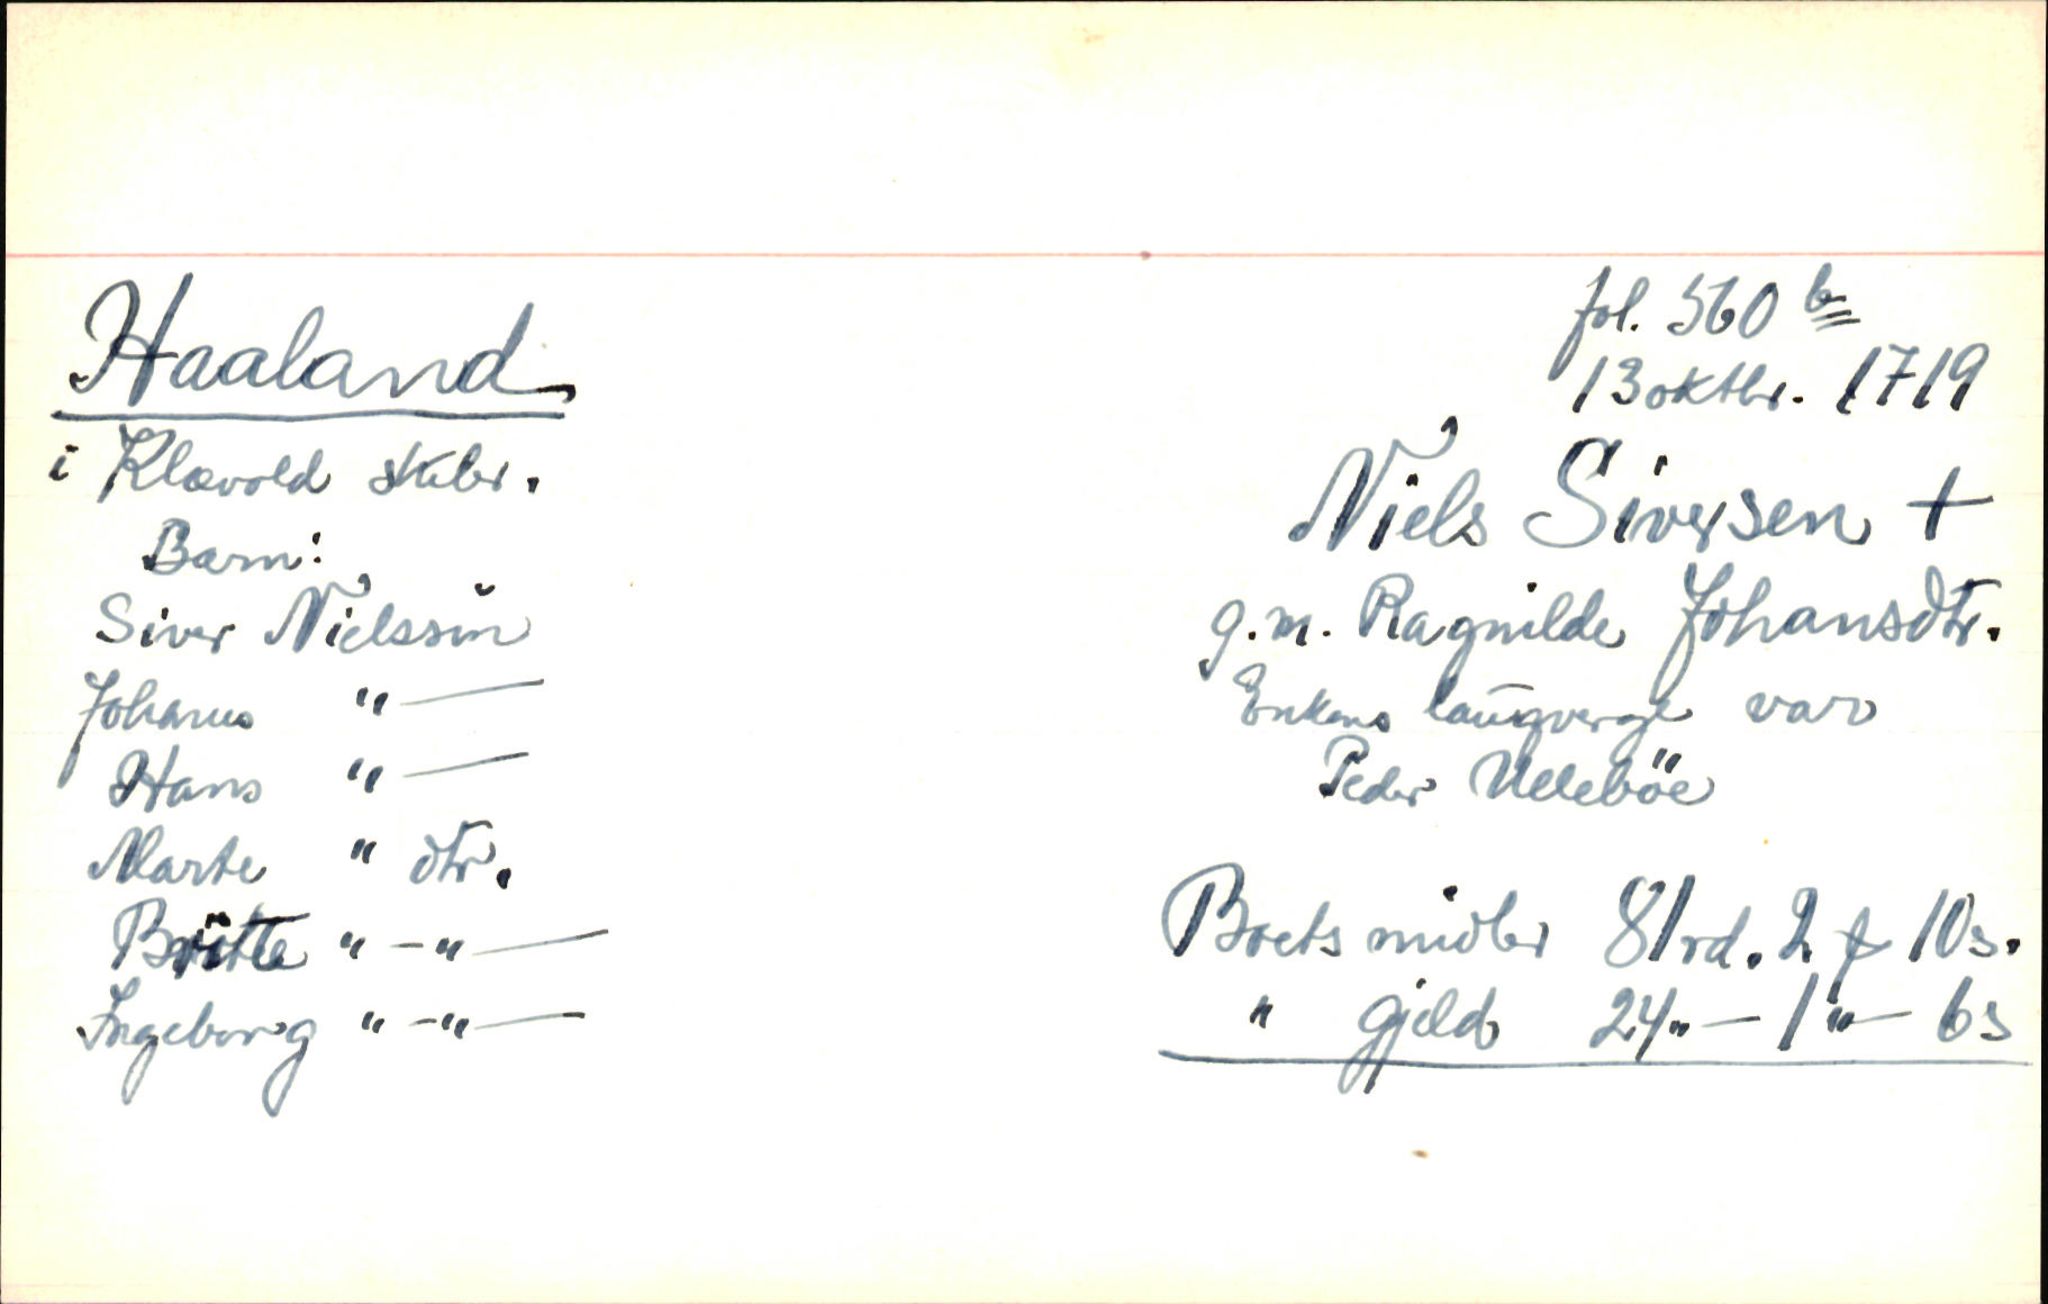 Haaland
i Klævold skibr.
Barn:
Siver Nielssøn
Johans " —
Hans " —
Marte " dtr.
Britte " - " —
Ingeborg " - " —
fol. 560 b
13 oktbr. 1719
Niels Siversen +
g.m. Ragnilde Johansdtr.
Enkens laugverge var
Peder Ullebøe
Boets midler 81 rd. 2 f 10 s.
" gjeld 24 " — 1 " — 6 s